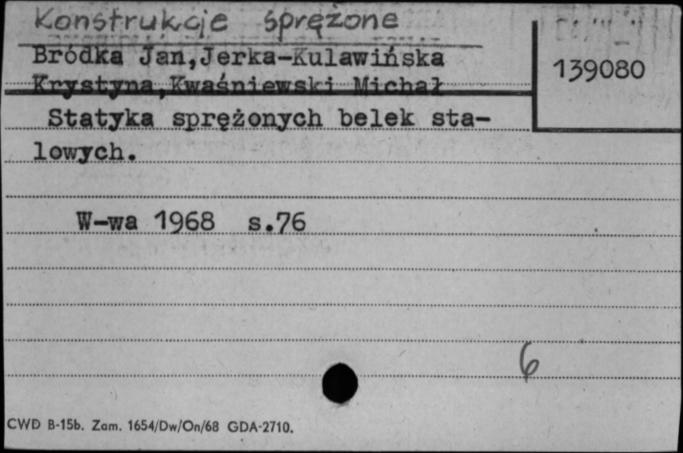 Konstrukcje sprężone
Bródka Jan,Jerka-Kulawińska
Krystyna,Kwaśniewski Michał
139080
Statyka sprężonych belek sta-
lowych.
W-wa 1968 s.76
6
CWD B-15b. Zam. 1654/Dw/On/68 GDA-2710.